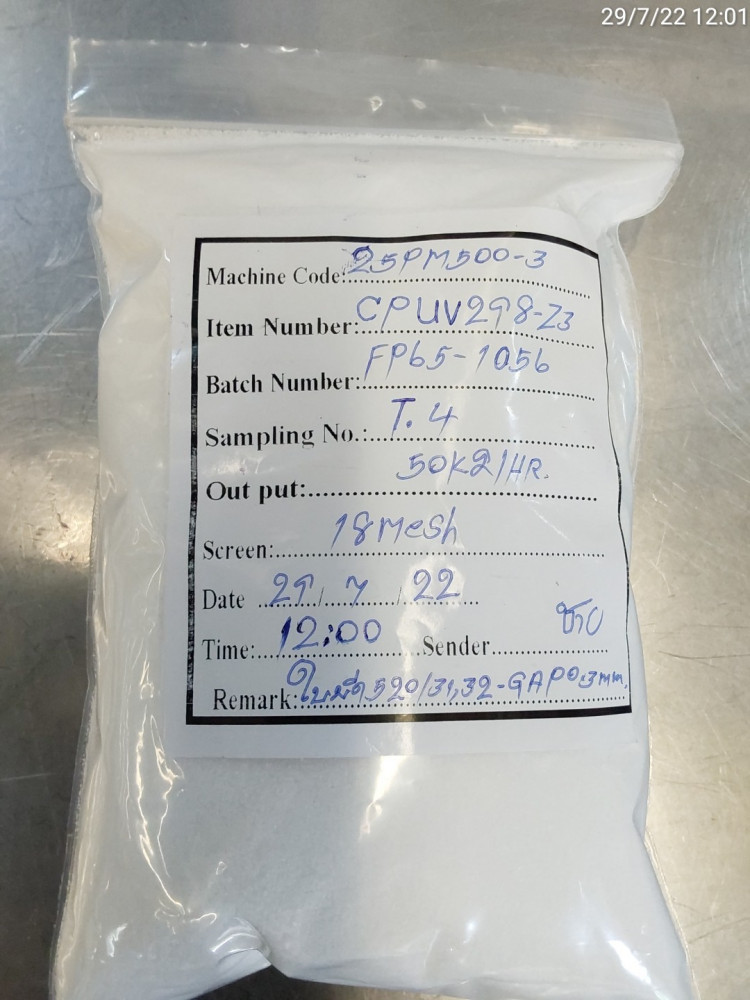 29/7/22 12:01
Machine Code: 25PM500-3
Item Number: CPUV298-Z3
Batch Number: FP65-1056
Sampling No.: T.4
Out put: 50Kg/HR.
Screen: 18Mesh
Date 29/7/22
Time: 12:00 Sender
Remark: ใบมีด 520/31,32-GAP 0.3mm.